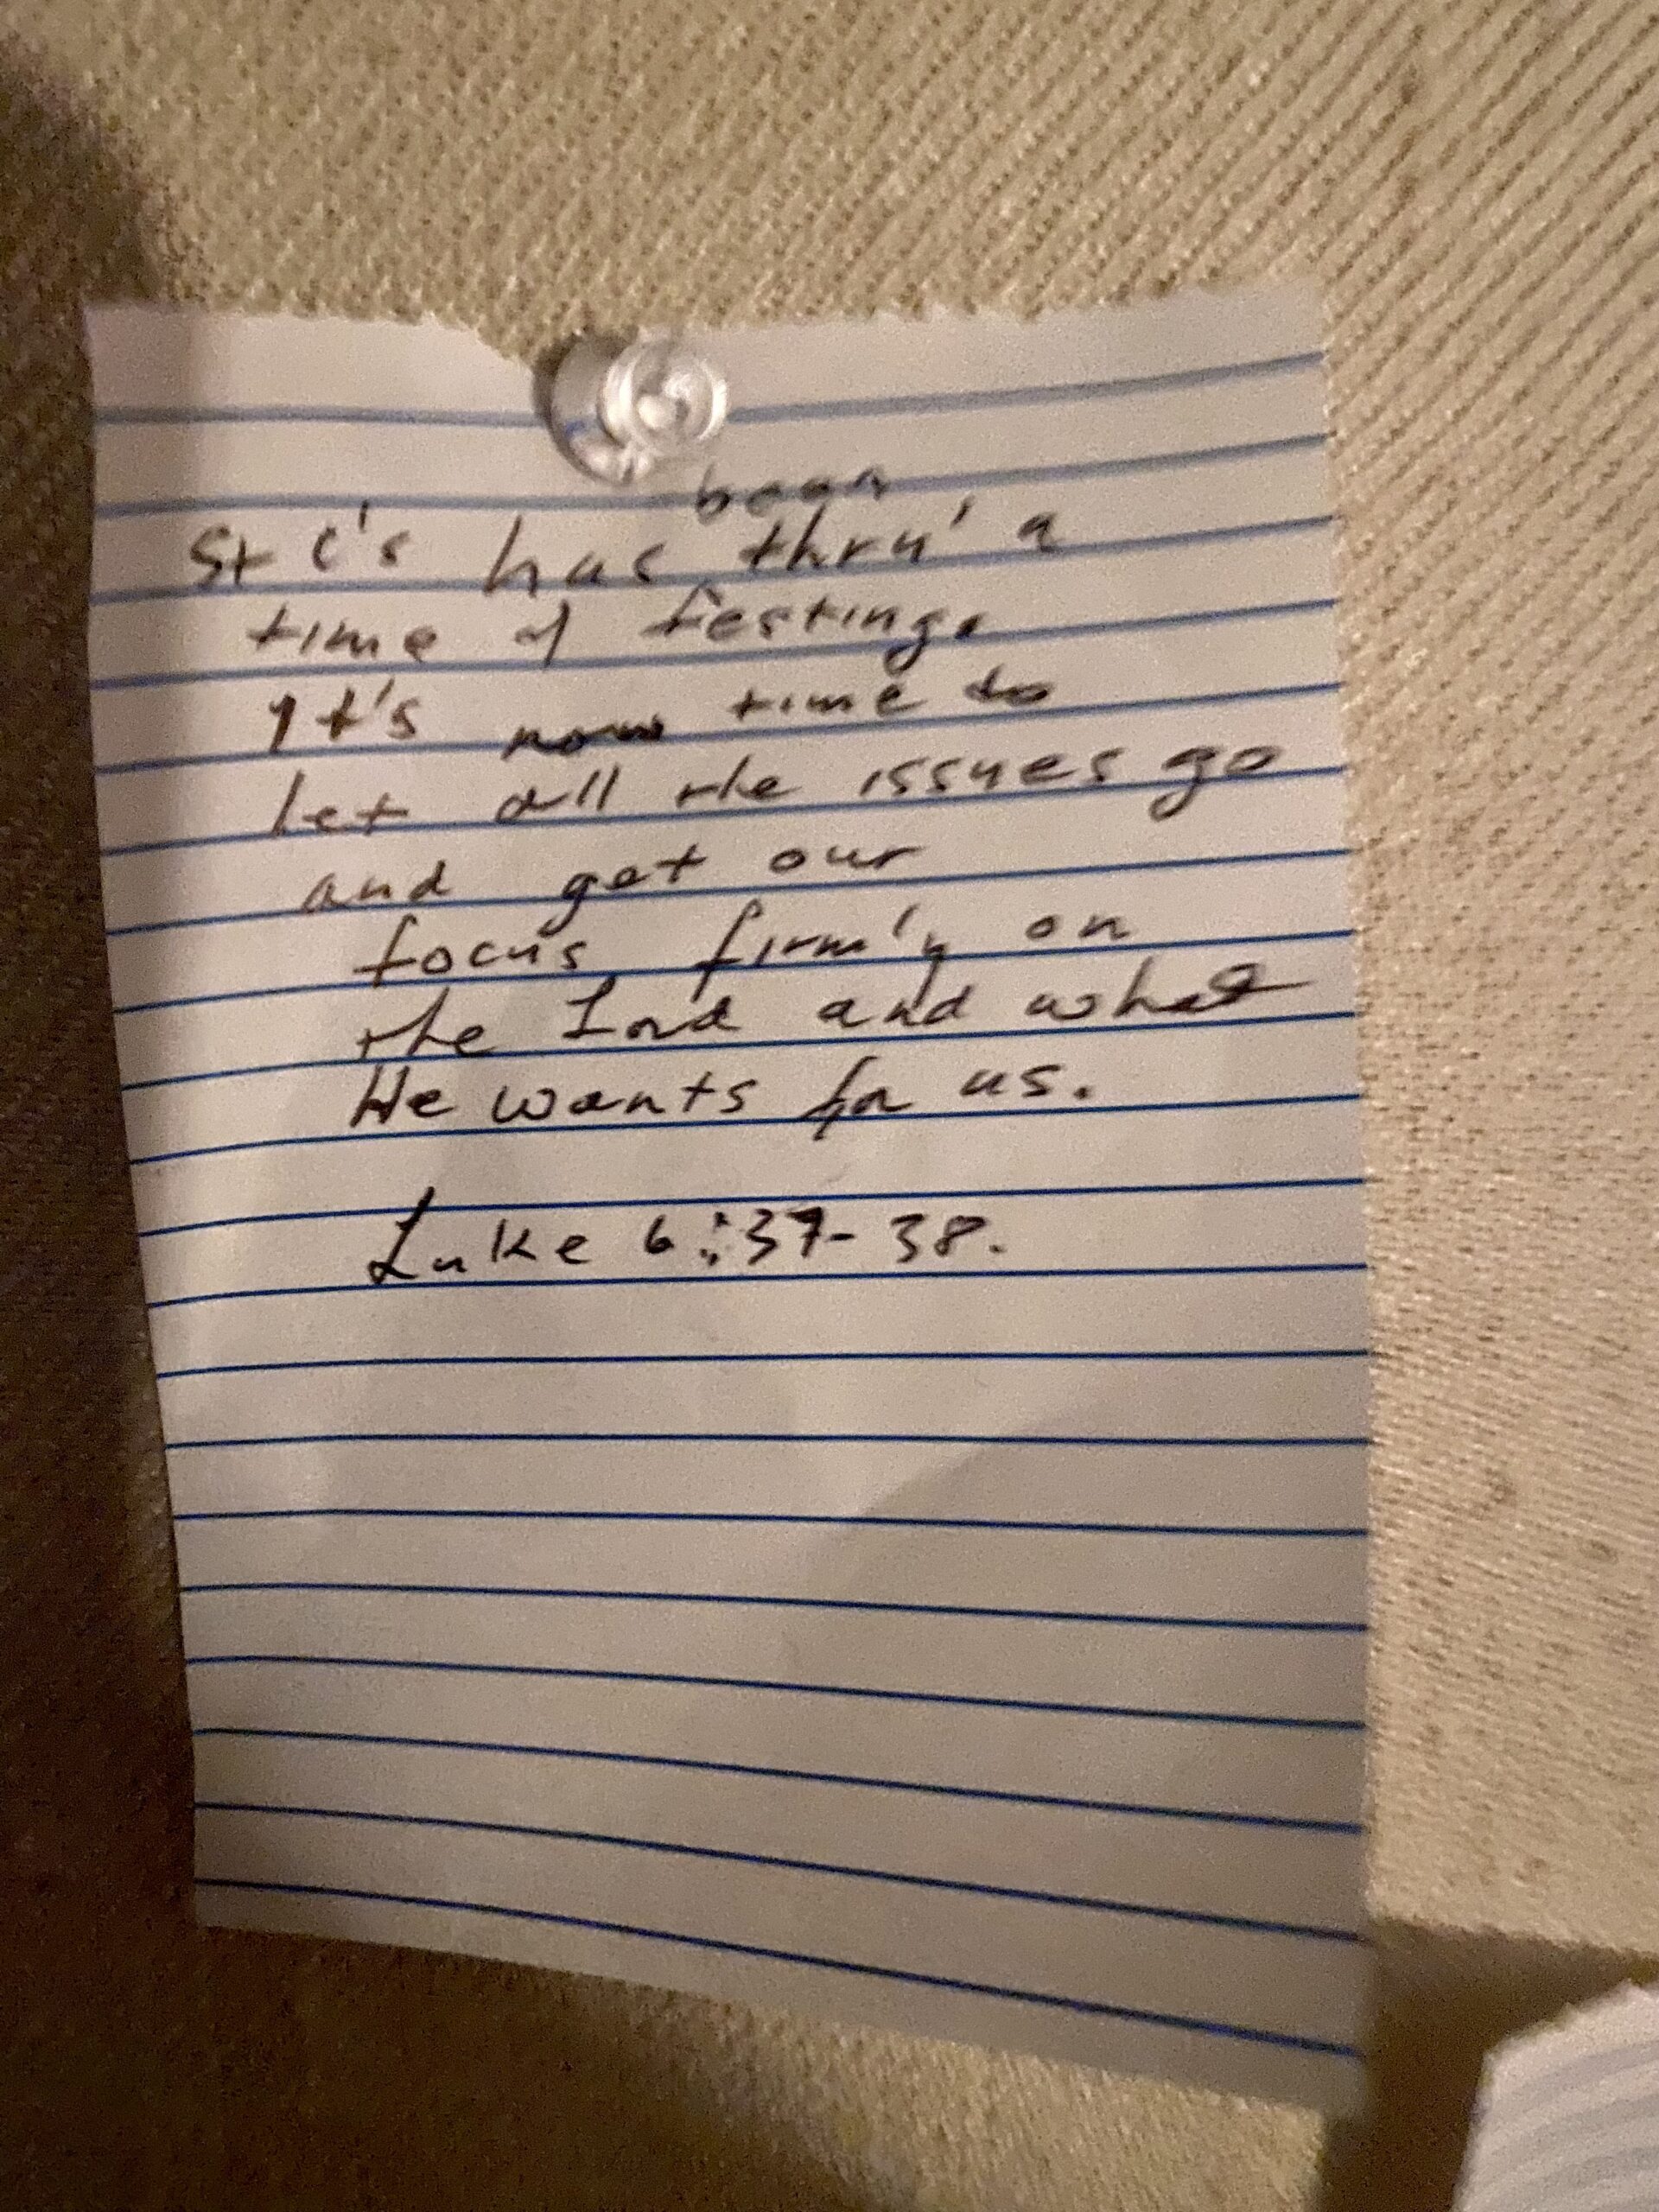 been
St C's has thru' a
time of testing.
It's now time to
let all the issues go
and get our
focus firmly on
the Lord and what
He wants for us.
Luke 6:37-38.